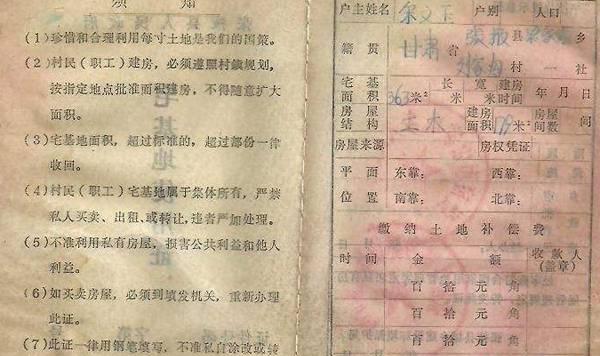 须 知
(1)珍惜和合理利用每寸土地是我们的国策。
(2)村民（职工）建房，必须遵照村镇规划，
按指定地点批准面积建房，不得随意扩大
面积。
(3)宅基地面积，超过标准的，超过部份一律
收回。
(4)村民（职工）宅基地属于集体所有，严禁
私人买卖、出租、或转让，违者严加处理。
(5)不准利用私有房屋，损害公共利益和他人
利益。
(6)如买卖房屋，必须到填发机关，重新办理
此证。
(7)此证一律用钢笔填写，不准私自涂改或转
户主姓名 户别 人口
籍贯 甘肃 省 县 乡
村 一 社
宅基面积 363 米² 长 米 宽 米 建房时间 年 月 日
房屋结构 土木 建房面积 米² 房屋间数 间
房屋来源 房权凭证
平面位置 东靠： 西靠：
南靠： 北靠：
缴纳土地补偿费
时间 金 额 收款人（盖章）
百 拾 元 角
百 拾 元 角
百 拾 元 角
百 拾 元 角